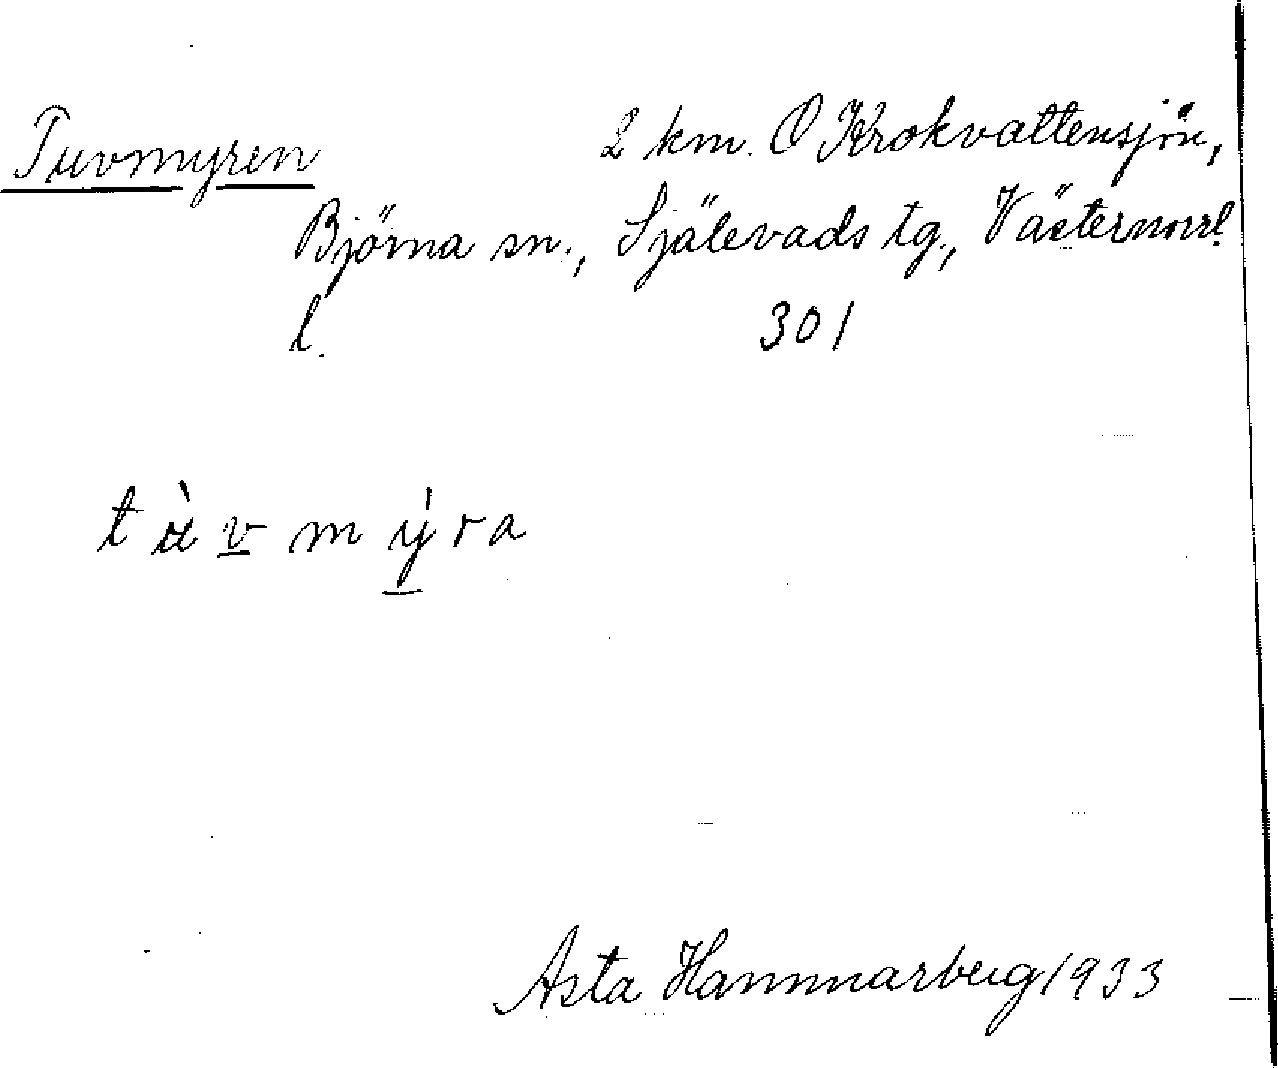 Tuvmyren 2 km. O Krokvattensjön,
Björna sn., Själevads tg., Västernorrl.
l. 301
t ù v m ý r a
Asta Hammarberg 1933